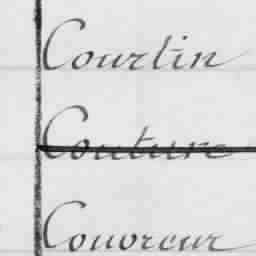 Courtin
Couture
Couvreur